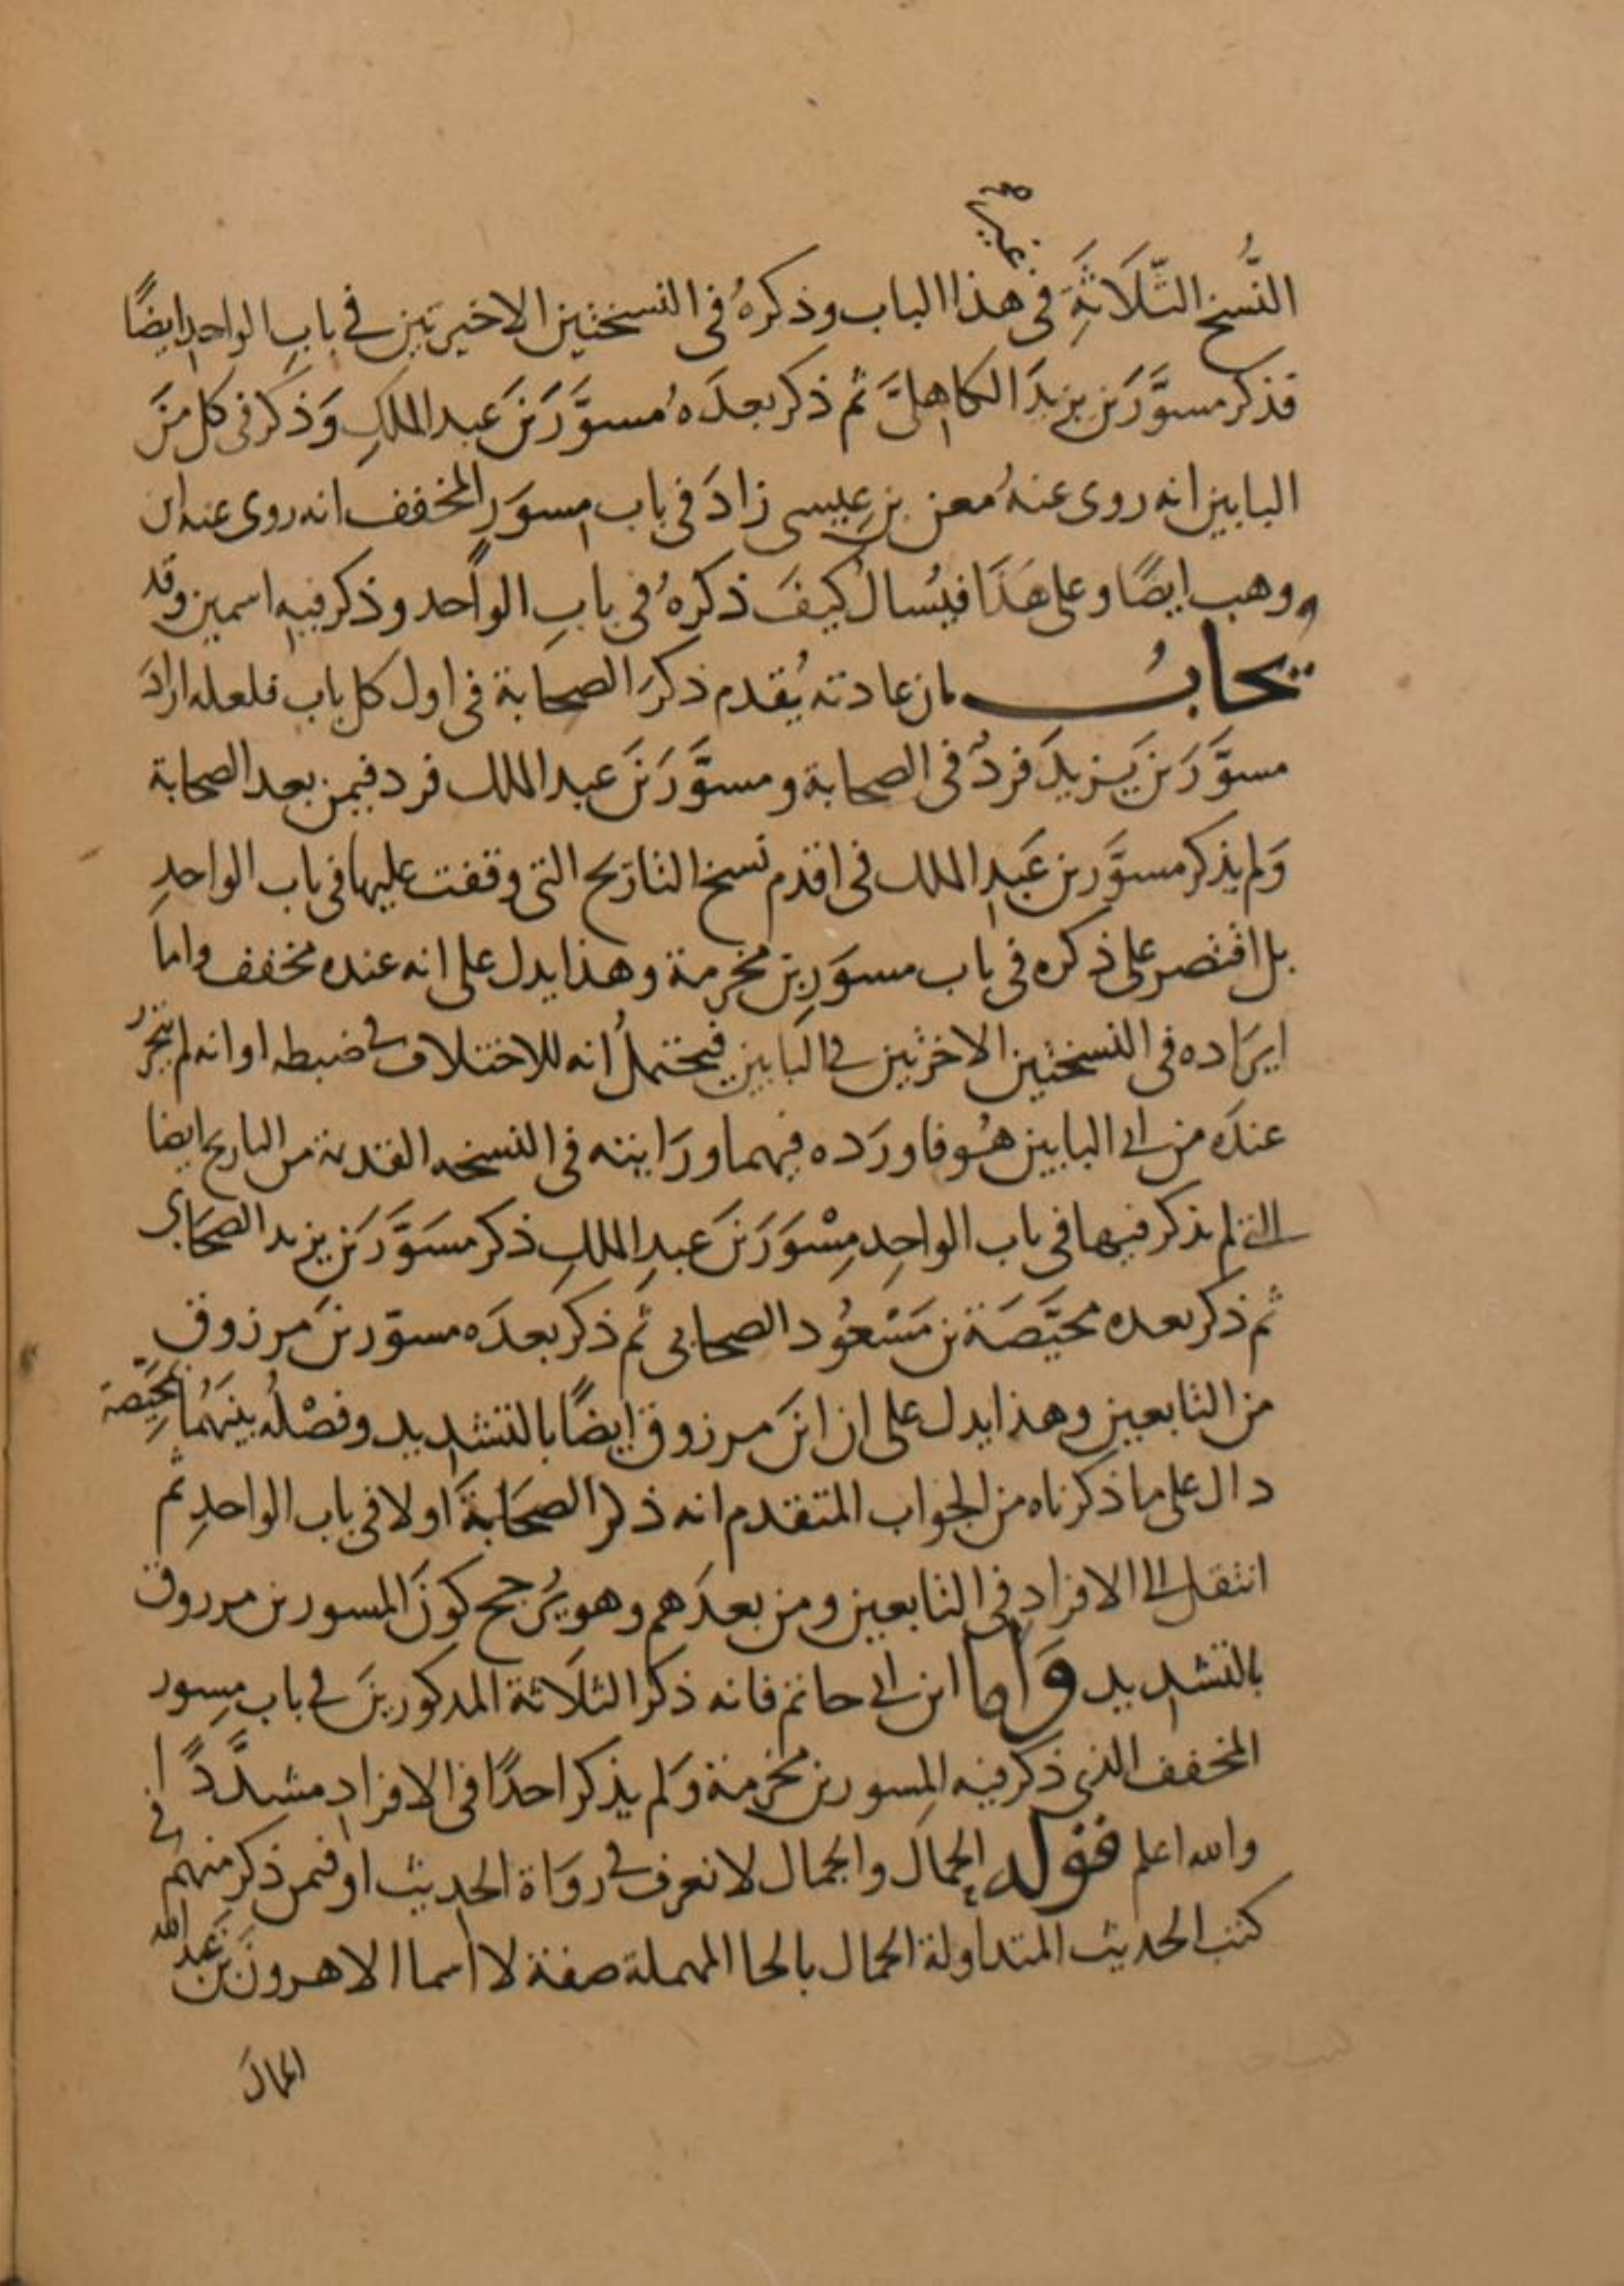 النُّسخ الثَّلَاثَةِ فى هذا الباب وذكرهُ فى النسختين الاخيرتين فى بابِ الواحدِ ايضًا
فذكر مسوَّرَ بن يزيدَ الكاهلىَّ ثم ذكر بعدَهُ مسوَّرَ بنَ عبد الملكِ وَذكر فى كل منَ
البابين انه روى عنهُ معن بن عيسى زادَ فى باب مِسوَرٍ المخفف انه روى عنه ابن
وهب ايضًا وعلى هَذَا فيُسال كيفَ ذكرهُ فى بابِ الواحد وذكر فيهِ اسمين وقد
يجابُ بان عادته يُقدم ذكرَ الصحابة فى اول كل باب فلعله ارادَ
مسوَّرَ بن يَزيدَ فردٌ فى الصحابة ومسوَّرَ بنَ عبد الملك فرد فيمن بعد الصحابة
وَلم يذكر مسوَّر بن عَبدِ الملك فى اقدم نسخ التاريخ التى وقفت عليها فى باب الواحدِ
بل اقتصر على ذكره فى باب مسوَرِ بن مخرمة وهذا يدل على انه عنده مخفف واما
ايرَاده فى النسختين الاخرتين فى البَابين فيحتملُ انه للاختلاف فى ضبطه او انه لم يتحرَّر
عندَه من اى البابين هُو فاورَده فيهما ورَايته فى النسخه القديمة من التاريخ ايضا
التى لم يذكر فيها فى باب الواحِد مِسْوَرَ بنَ عبدِ الملكِ ذكر مسَوَّرَ بن يزيد الصحَابى
ثم ذكر بعده محيَّصَة بن مَسْعُود الصحابى ثم ذكر بعدَه مسوّر بن مَرزوق
من التابعين وهذا يدل على ان ابنَ مرزوق ايضًا بالتشديد وفصْلُه بينَهُما بمُحيَّصة
دال على ما ذكرناه من الجواب المتقدم انه ذكر الصحَابةَ اولا فى باب الواحدِ ثم
انتقل الى الافراد فى التابعين ومن بعدَهم وهو يُرجح كونَ المسور بن مرزوق
بالتشديد وَاما ابن ابى حاتم فانه ذكر الثلَاثة المذكورينَ فى باب مِسور
المخفف الذى ذكر فيه المِسور بن مخرَمة وَلم يذكر احدًا فى الافراد مشدَّدًا
والله اعلم فقوله الحمالَ والجمال لا نعرف فى روَاة الحديث او فمن ذكر منهم فى
كتب الحديث المتداولة الحمال بالحا المهملة صفة لا اسما الا هرونَ بنَ عَبد الله
الحمالَ